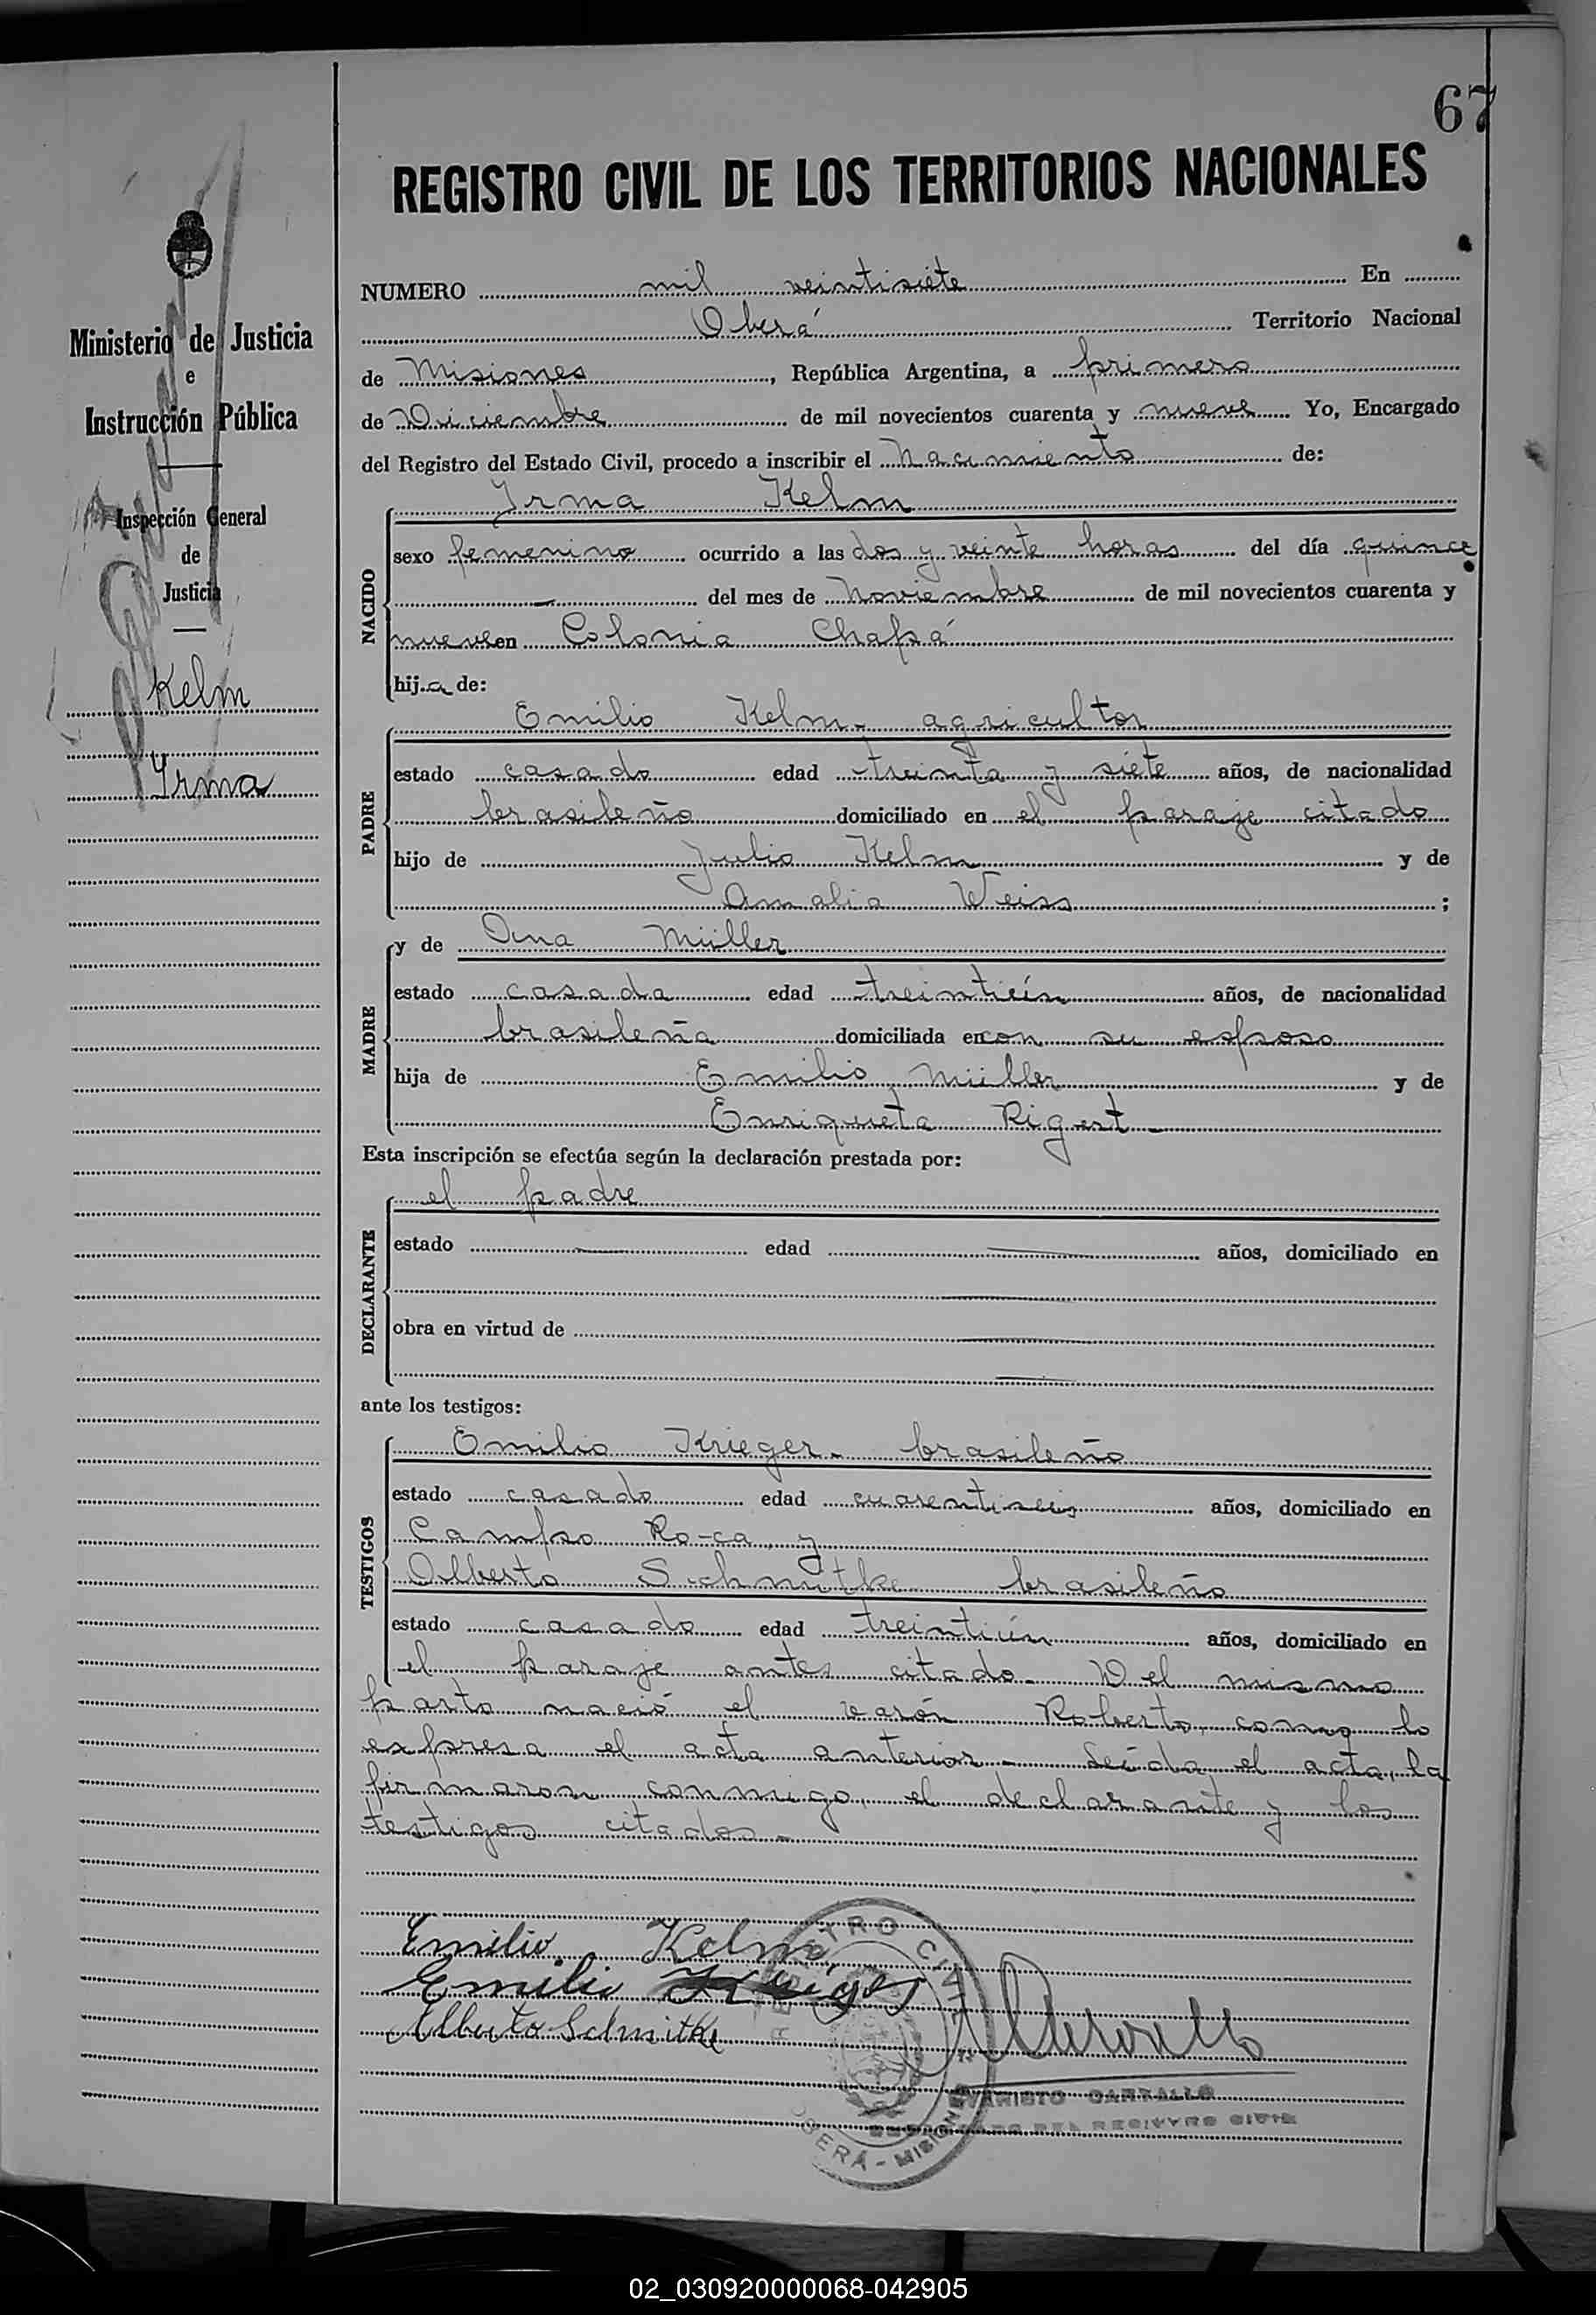 67
REGISTRO CIVIL DE LOS TERRITORIOS NACIONALES
Ministerio de Justicia
e
Instrucción Pública
Inspección General
de
Justicia
Kelm
Yrma
NUMERO mil veintisiete En
Oberá Territorio Nacional
de Misiones, República Argentina, a primero
de Diciembre de mil novecientos cuarenta y nueve Yo, Encargado
del Registro del Estado Civil, procedo a inscribir el nacimiento de:
NACIDO
Yrma Kelm
sexo femenino ocurrido a las dos y veinte horas del día quince
del mes de Noviembre de mil novecientos cuarenta y
nueve en Colonia Chapá
hija de:
PADRE
Emilio Kelm - agricultor
estado casado edad treinta y siete años, de nacionalidad
brasileño domiciliado en el paraje citado
hijo de Julio Kelm y de
Amalia Weiss ;
MADRE
y de Ana Müller
estado casada edad treintiún años, de nacionalidad
brasileña domiciliada en con su esposo
hija de Emilio Müller y de
Enriqueta Rigert -
Esta inscripción se efectúa según la declaración prestada por:
DECLARANTE
el padre
estado edad años, domiciliado en
obra en virtud de
ante los testigos:
TESTIGOS
Emilio Krieger - brasileño
estado casado edad cuarentiseis años, domiciliado en
Campo Ro-ca y
Alberto Schmitke brasileño
estado casado edad treintiún años, domiciliado en
el paraje antes citado - Del mismo
parto nació el varón Roberto, como lo
expresa el acta anterior - Leída el acta, la
firmaron conmigo, el declarante y los
testigos citados -
Emilio Kelm
Emilio Kriger
Alberto Schmitke
REGISTRO CIVIL
OBERÁ - MISIONES
EVARISTO CARVALLO
ENCARGADO DEL REGISTRO CIVIL
02_030920000068-042905